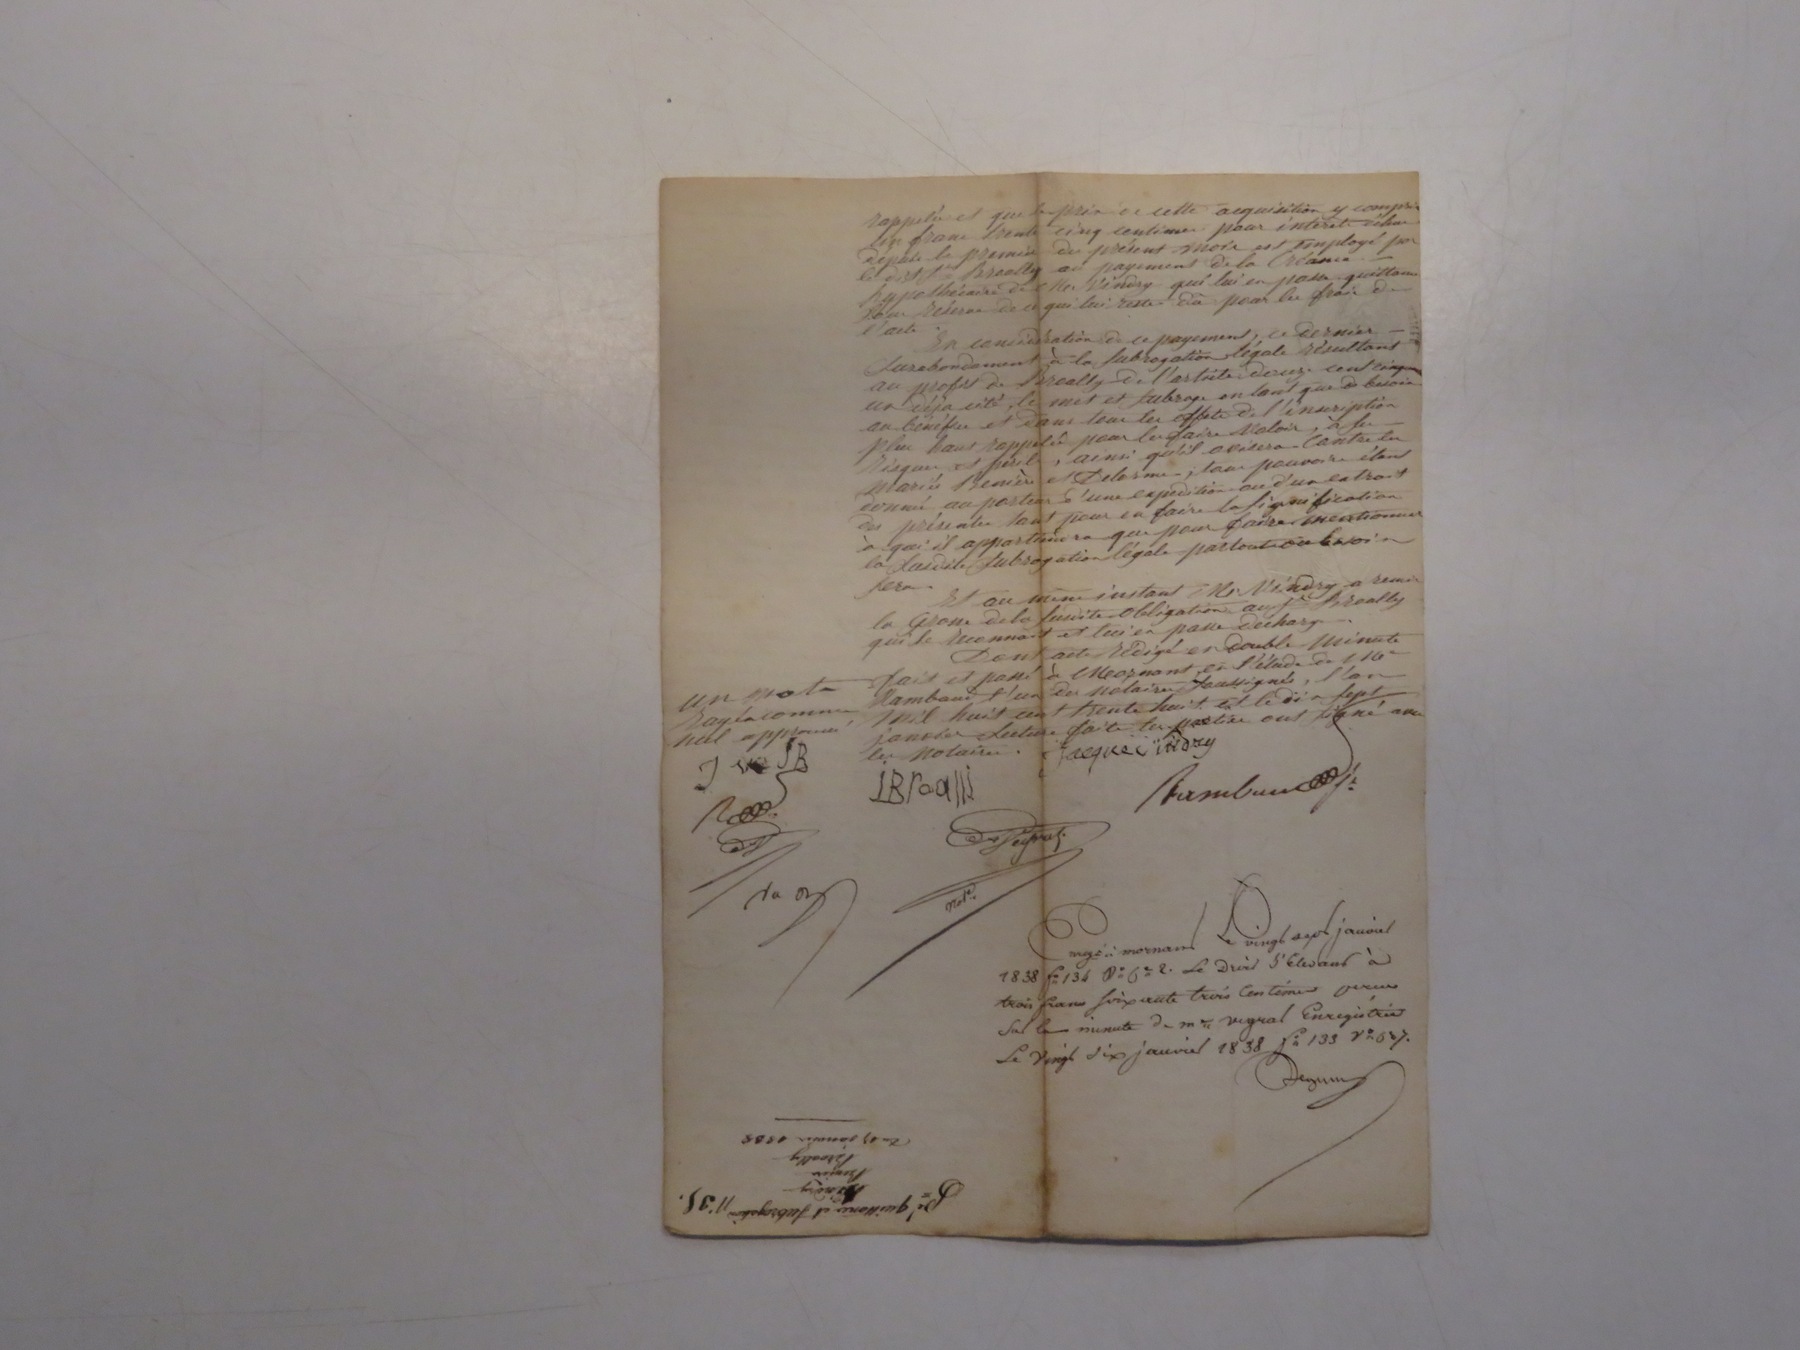 rappelée et que le prix de cette acquisition y compris
un franc trente cinq centimes pour intérêt échus
depuis le premier du présent mois est employé par
le dit Sr Broally au payement de la Créance
hypothécaire de Me Vindry qui lui en passe quittance
sous réserve de ce qui lui reste dû pour les frais de
l'acte.
En considération de ce payement, ce dernier
surabondament à la subrogation légale résultant
au profit de Broally de l'article douze cent cinquante
un déjà cité, le met et subroge en tant que de besoin
au bénéfice et dans tous les effets de l'inscription
plus haut rappelée pour les faire valoir, à ses
risques et périls, ainsi qu'il avisera contre les
mariés Benière et Delorme; tous pouvoirs étant
donné au porteur d'une expédition ou d'un extrait
des présentes tant pour en faire la signification
à qui il appartiendra que pour faire mentionner
la susdite subrogation légale partout où besoin
sera.
Et au même instant Me Vindry a remis
la Grosse de la susdite obligation au Sr Broally
qui le reconnait et lui en passe décharge.
Dont acte rédigé en double minute
fait et passé à Mornant en l'étude de Me
Rambaud l'un des notaires soussignés, l'an
mil huit cent trente huit et le dix sept
janvier Lecture faite les parties ont signé avec
les notaires.
un mot
rayé comme
nul approuvé
J B
Jacque Vindry
JBroalli
Rambaud
not.
Enregé à mornant Le vingt sept janvier
1838 fo 134 Vo Ce 2. Le Droit S'Elevant à
trois frans soixante trois Centimes perçu
sur la minute de me Enregistrée
Le vingt six janvier 1838 fo 133 Vo
Deguin
Du 17 janvier 1838
Broally
Benière
Vindry
quittance et subrogation no 35.